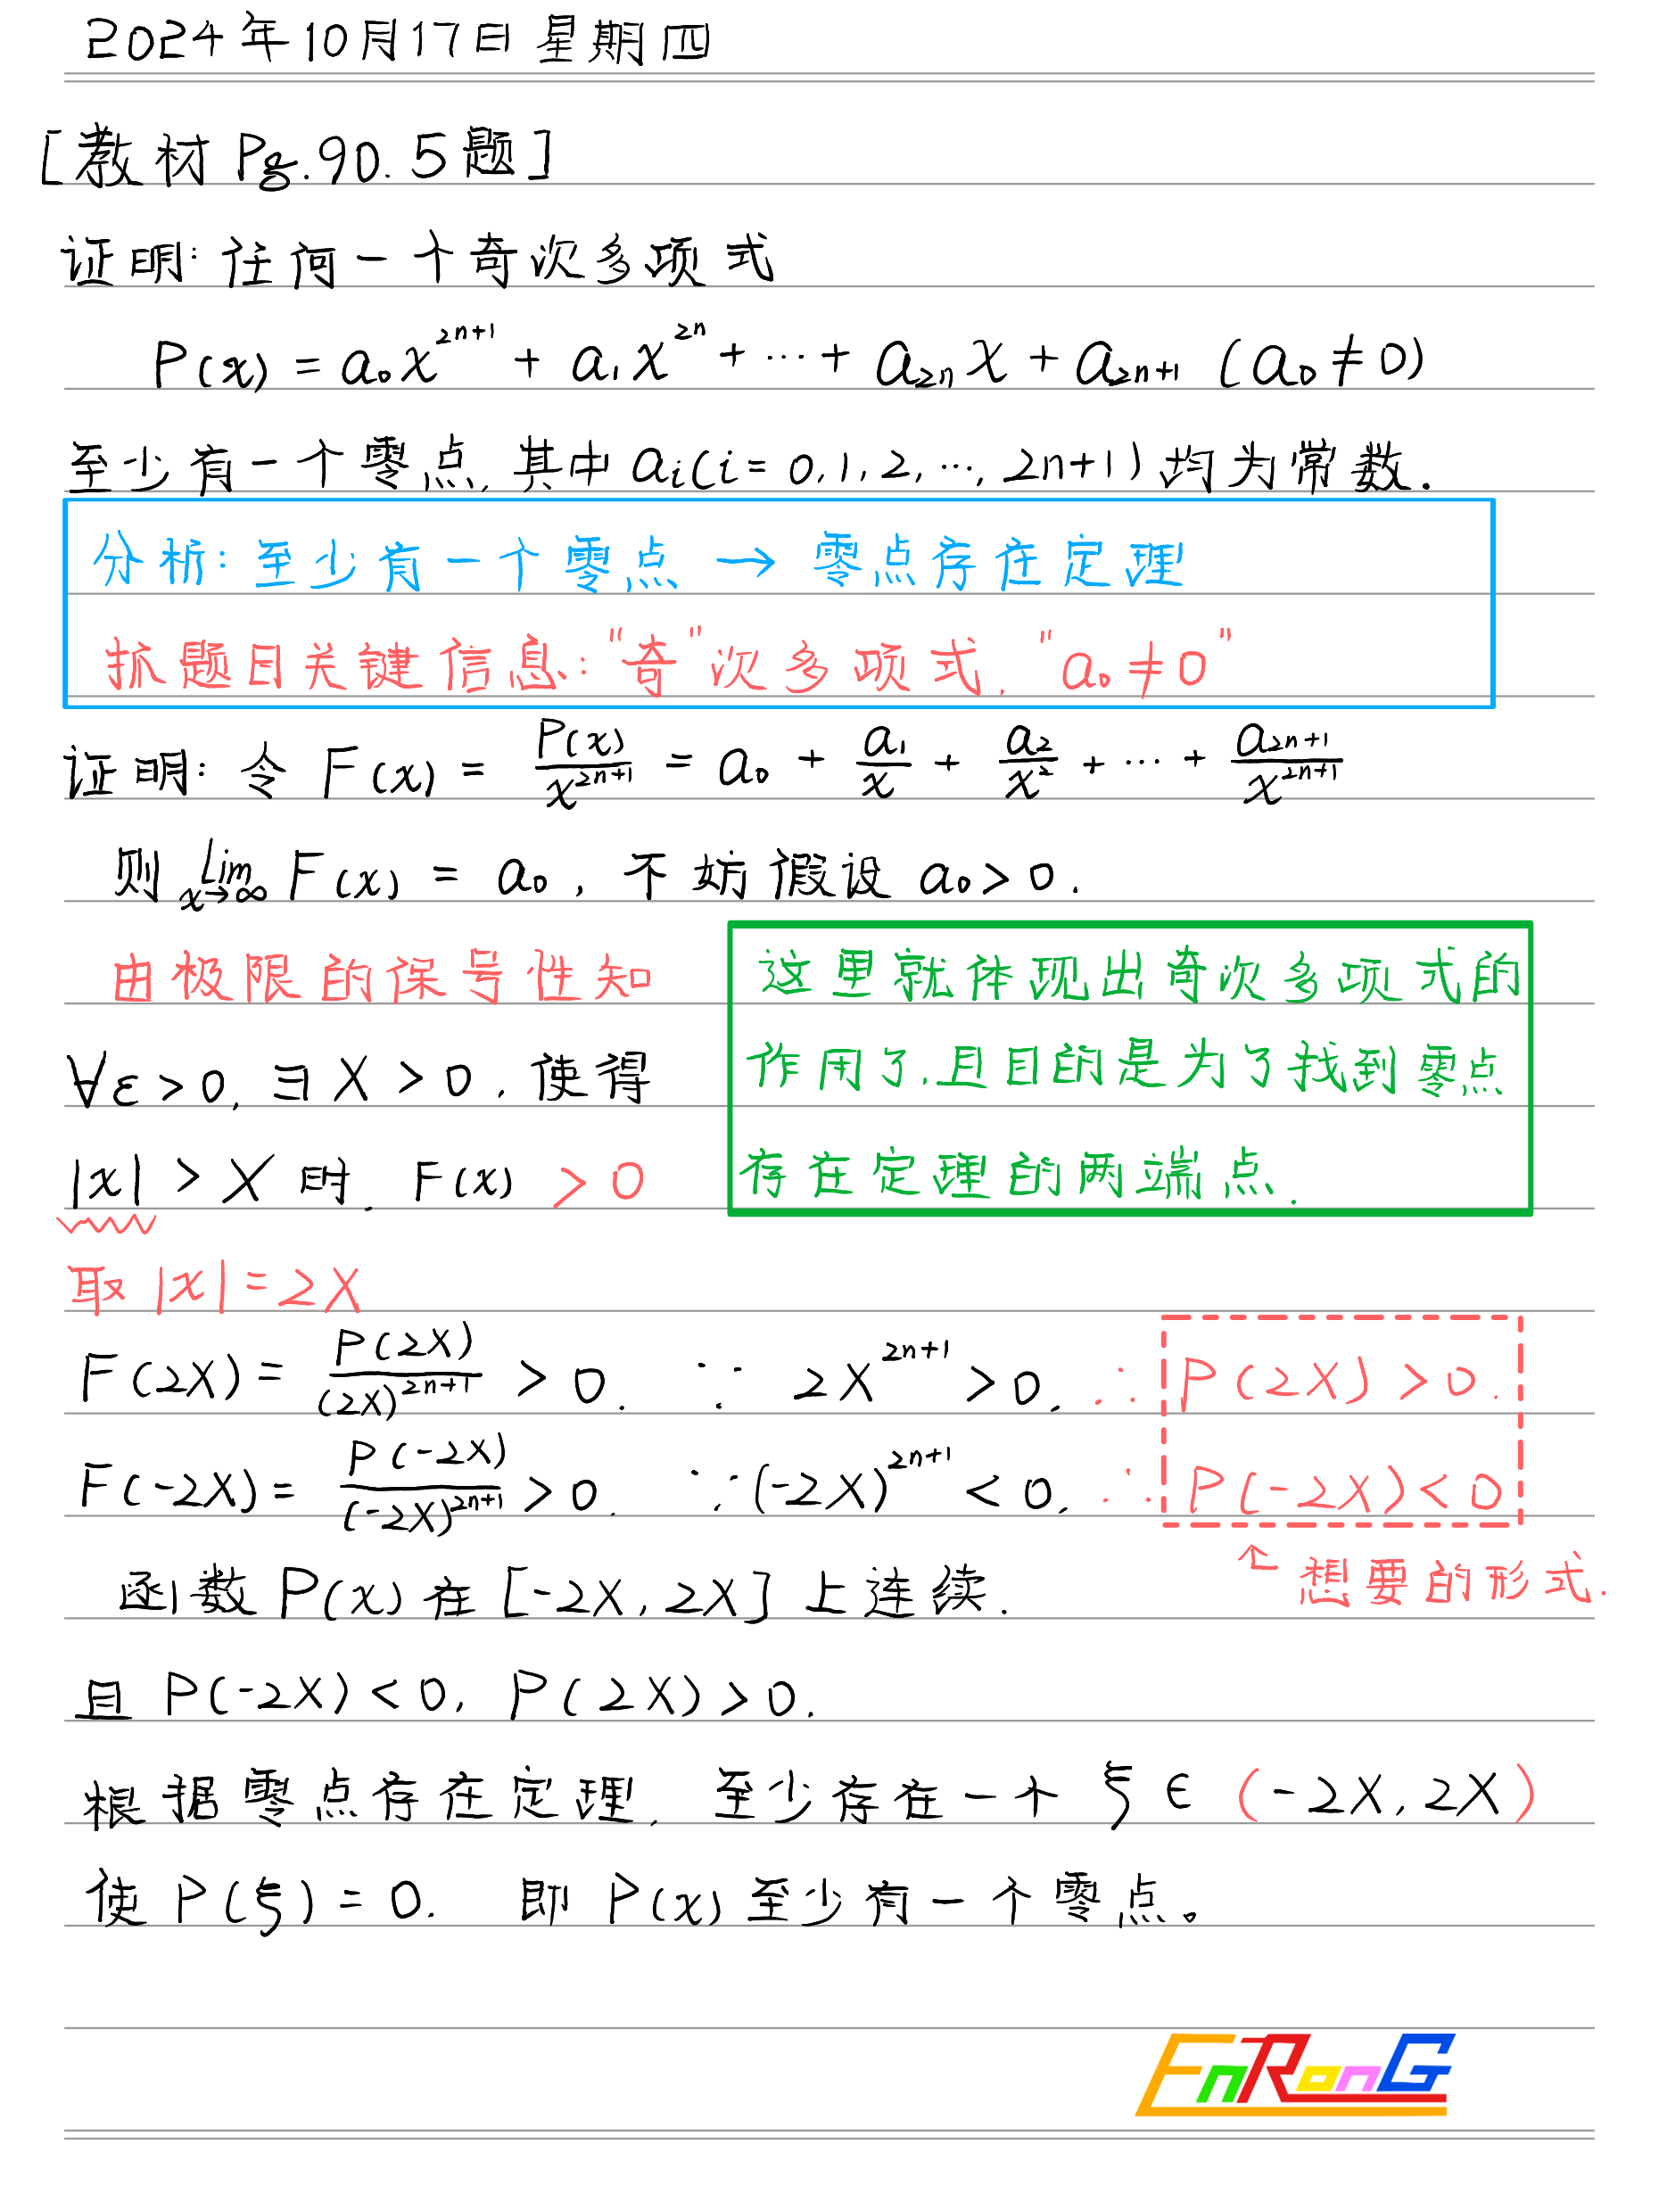 2024年10月17日 星期四
[教材 Pg.90.5题]
证明: 任何一个奇次多项式
P(x) = a₀x²ⁿ⁺¹ + a₁x²ⁿ + ⋯ + a₂ₙx + a₂ₙ₊₁ (a₀ ≠ 0)
至少有一个零点, 其中 aᵢ(i = 0, 1, 2, ⋯, 2n+1) 均为常数.
分析: 至少有一个零点 → 零点存在定理
抓题目关键信息: "奇"次多项式. "a₀ ≠ 0"
证明: 令 F(x) = P(x)/x²ⁿ⁺¹ = a₀ + a₁/x + a₂/x² + ⋯ + a₂ₙ₊₁/x²ⁿ⁺¹
则 lim x→∞ F(x) = a₀, 不妨假设 a₀ > 0.
由极限的保号性知
∀ε > 0, ∃X > 0, 使得
|x| > X 时. F(x) > 0
这里就体现出奇次多项式的
作用了.且目的是为了找到零点
存在定理的两端点.
取 |x| = 2X
F(2X) = P(2X)/(2X)²ⁿ⁺¹ > 0. ∵ 2X²ⁿ⁺¹ > 0, ∴ P(2X) > 0.
F(-2X) = P(-2X)/(-2X)²ⁿ⁺¹ > 0. ∵ (-2X)²ⁿ⁺¹ < 0, ∴ P(-2X) < 0
↑ 想要的形式.
函数 P(x) 在 [-2X, 2X] 上连续.
且 P(-2X) < 0, P(2X) > 0.
根据零点存在定理, 至少存在一个 ξ ∈ (-2X, 2X)
使 P(ξ) = 0. 即 P(x) 至少有一个零点。
EnRonG